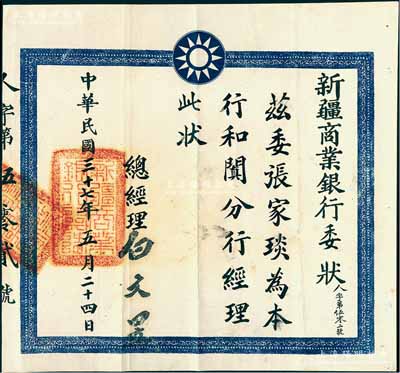 新疆商業銀行委狀
人字第伍零二號
茲委張家琰為本
行和闐分行經理
此状
總經理 白文昱
中華民國三十七年五月二十四日
人字第五零貳號